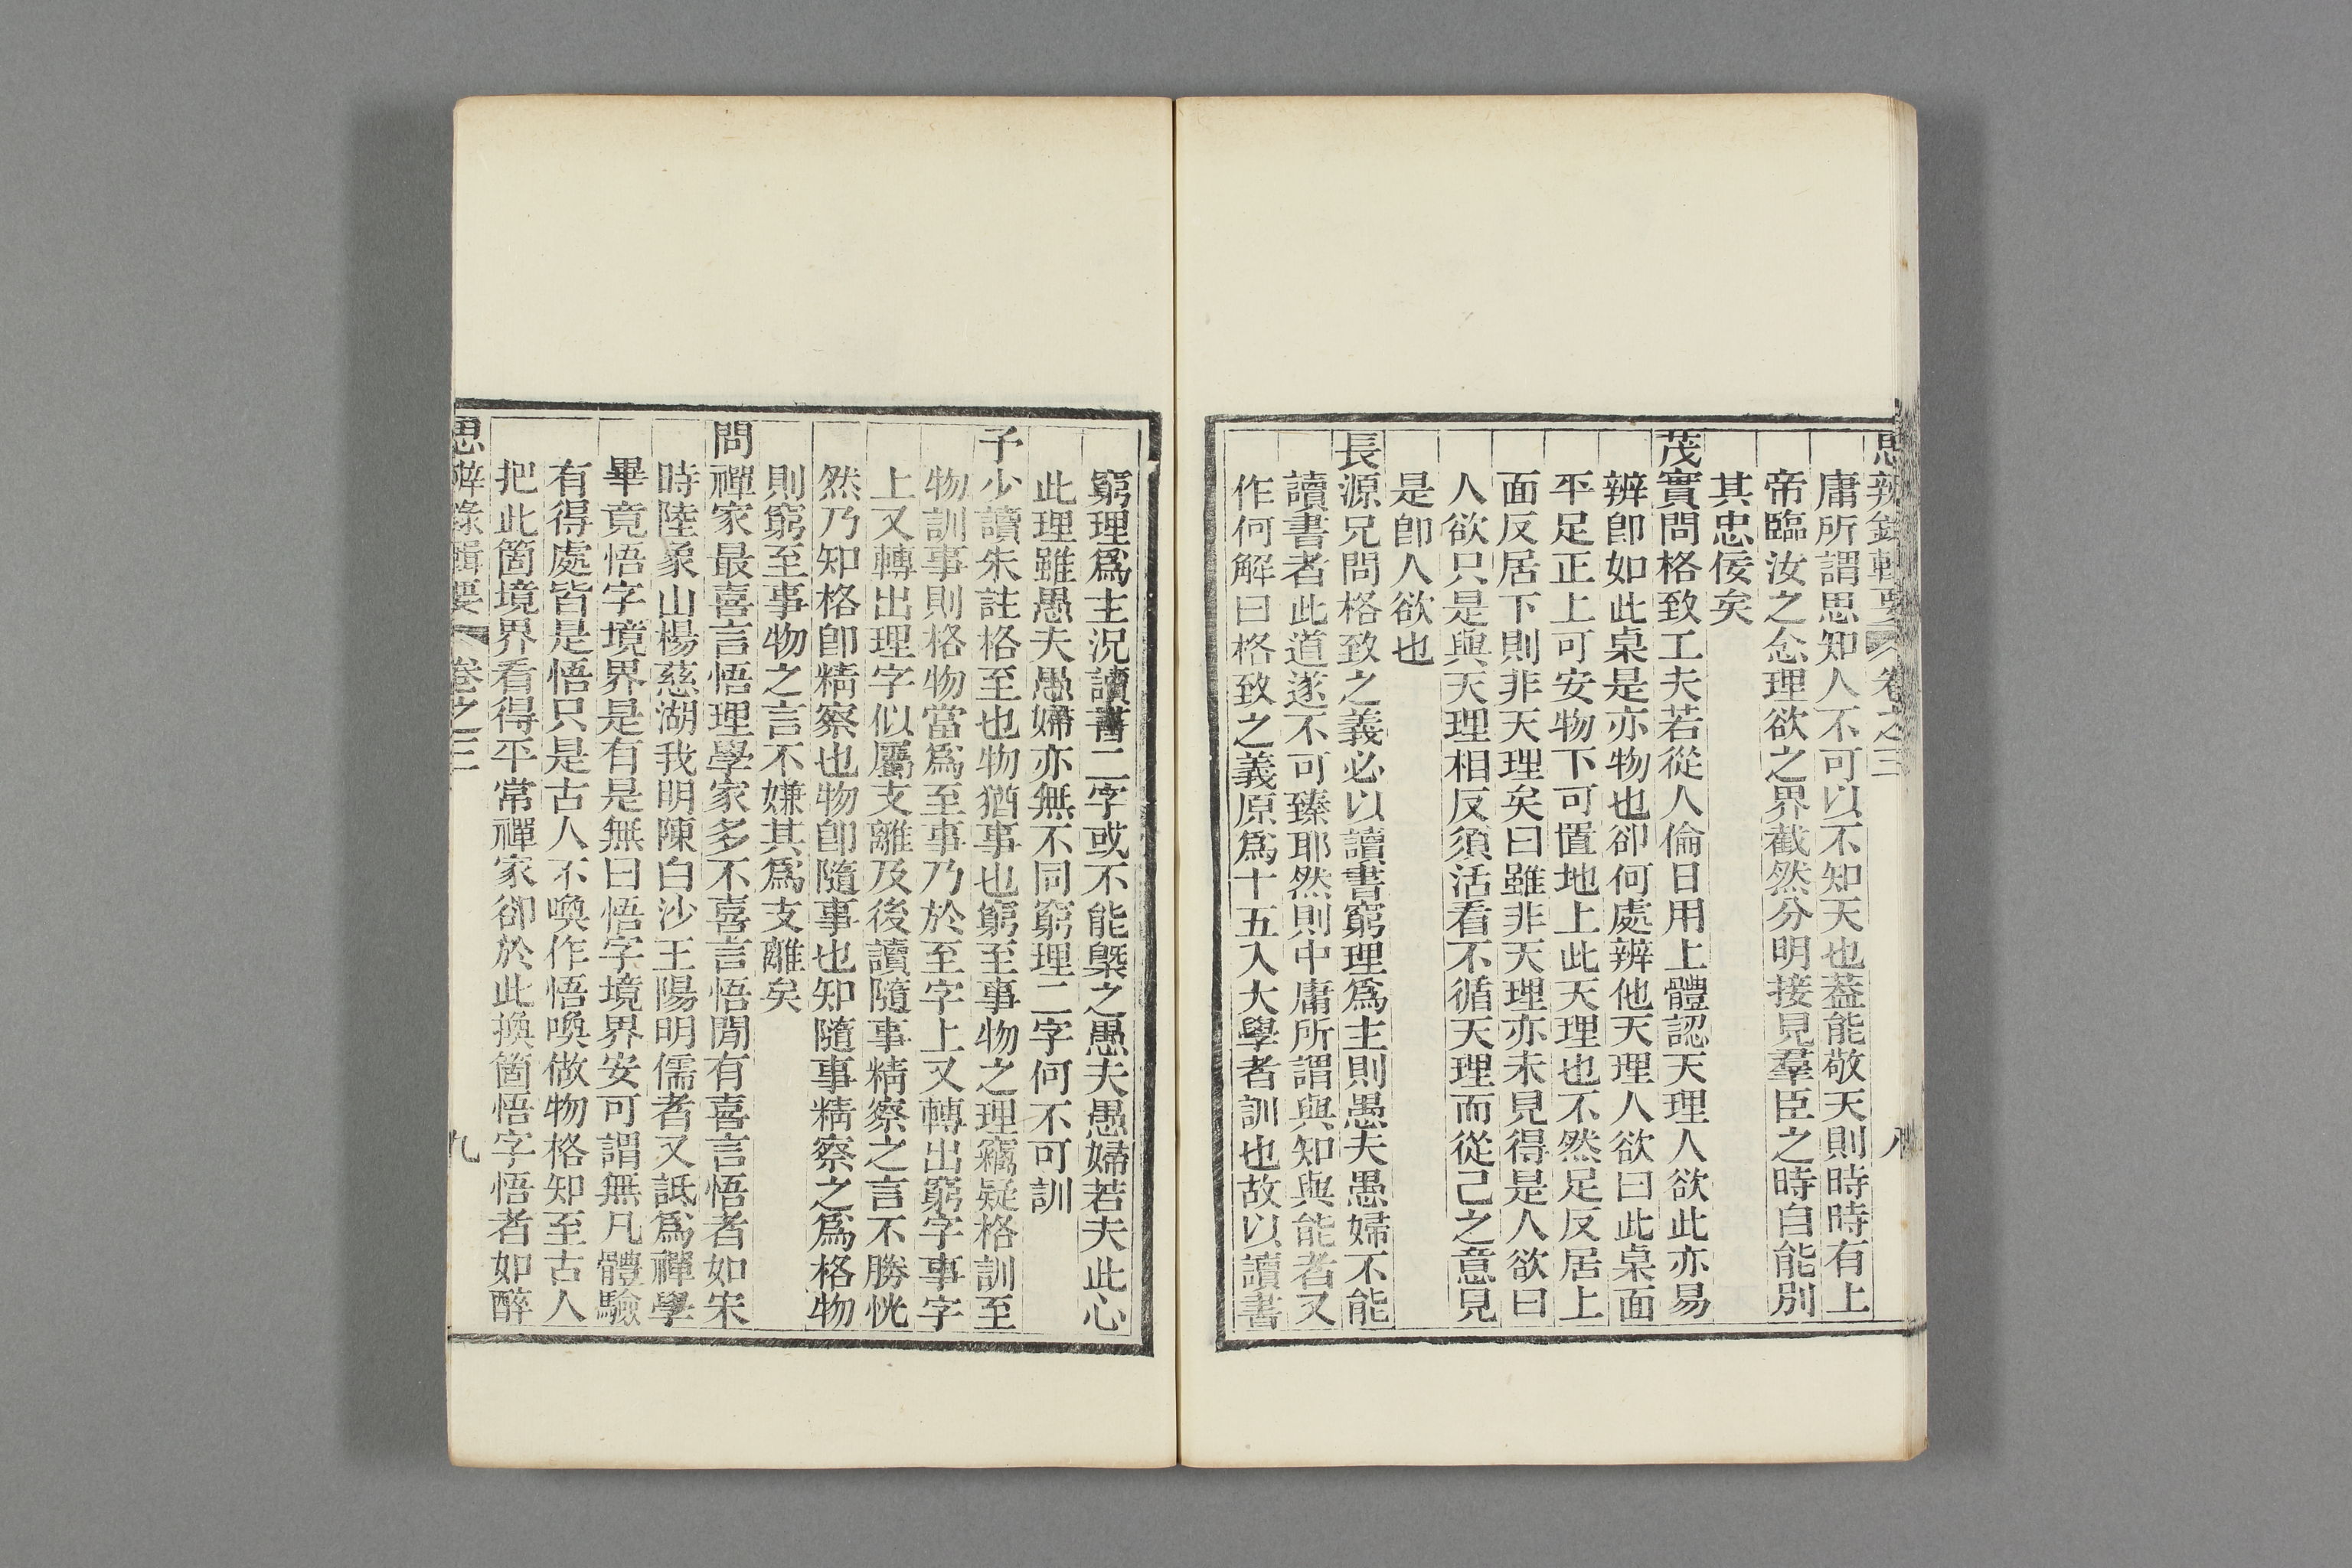 思辨錄輯要 卷之三 八
庸所謂思知人不可以不知天也葢能敬天則時時有上
帝臨汝之念理欲之界截然分明接見羣臣之時自能別
其忠佞矣
茂實問格致工夫若從人倫日用上體認天理人欲此亦易
辨卽如此桌是亦物也卻何處辨他天理人欲曰此桌面
平足正上可安物下可置地上此天理也不然足反居上
面反居下則非天理矣曰雖非天理亦未見得是人欲曰
人欲只是與天理相反須活看不循天理而從己之意見
是卽人欲也
長源兄問格致之義必以讀書窮理爲主則愚夫愚婦不能
讀書者此道遂不可臻耶然則中庸所謂與知與能者又
作何解曰格致之義原爲十五入大學者訓也故以讀書
窮理爲主況讀書二字或不能槩之愚夫愚婦若夫此心
此理雖愚夫愚婦亦無不同窮理二字何不可訓
予少讀朱註格至也物猶事也窮至事物之理竊疑格訓至
物訓事則格物當爲至事乃於至字上又轉出窮字事字
上又轉出理字似屬支離及後讀隨事精察之言不勝恍
然乃知格卽精察也物卽隨事也知隨事精察之爲格物
則窮至事物之言不嫌其爲支離矣
問禪家最喜言悟理學家多不喜言悟閒有喜言悟者如宋
時陸象山楊慈湖我明陳白沙王陽明儒者又詆爲禪學
畢竟悟字境界是有是無曰悟字境界安可謂無凡體驗
有得處皆是悟只是古人不喚作悟喚做物格知至古人
把此箇境界看得平常禪家卻於此換箇悟字悟者如醉
思辨錄輯要 卷之三 九